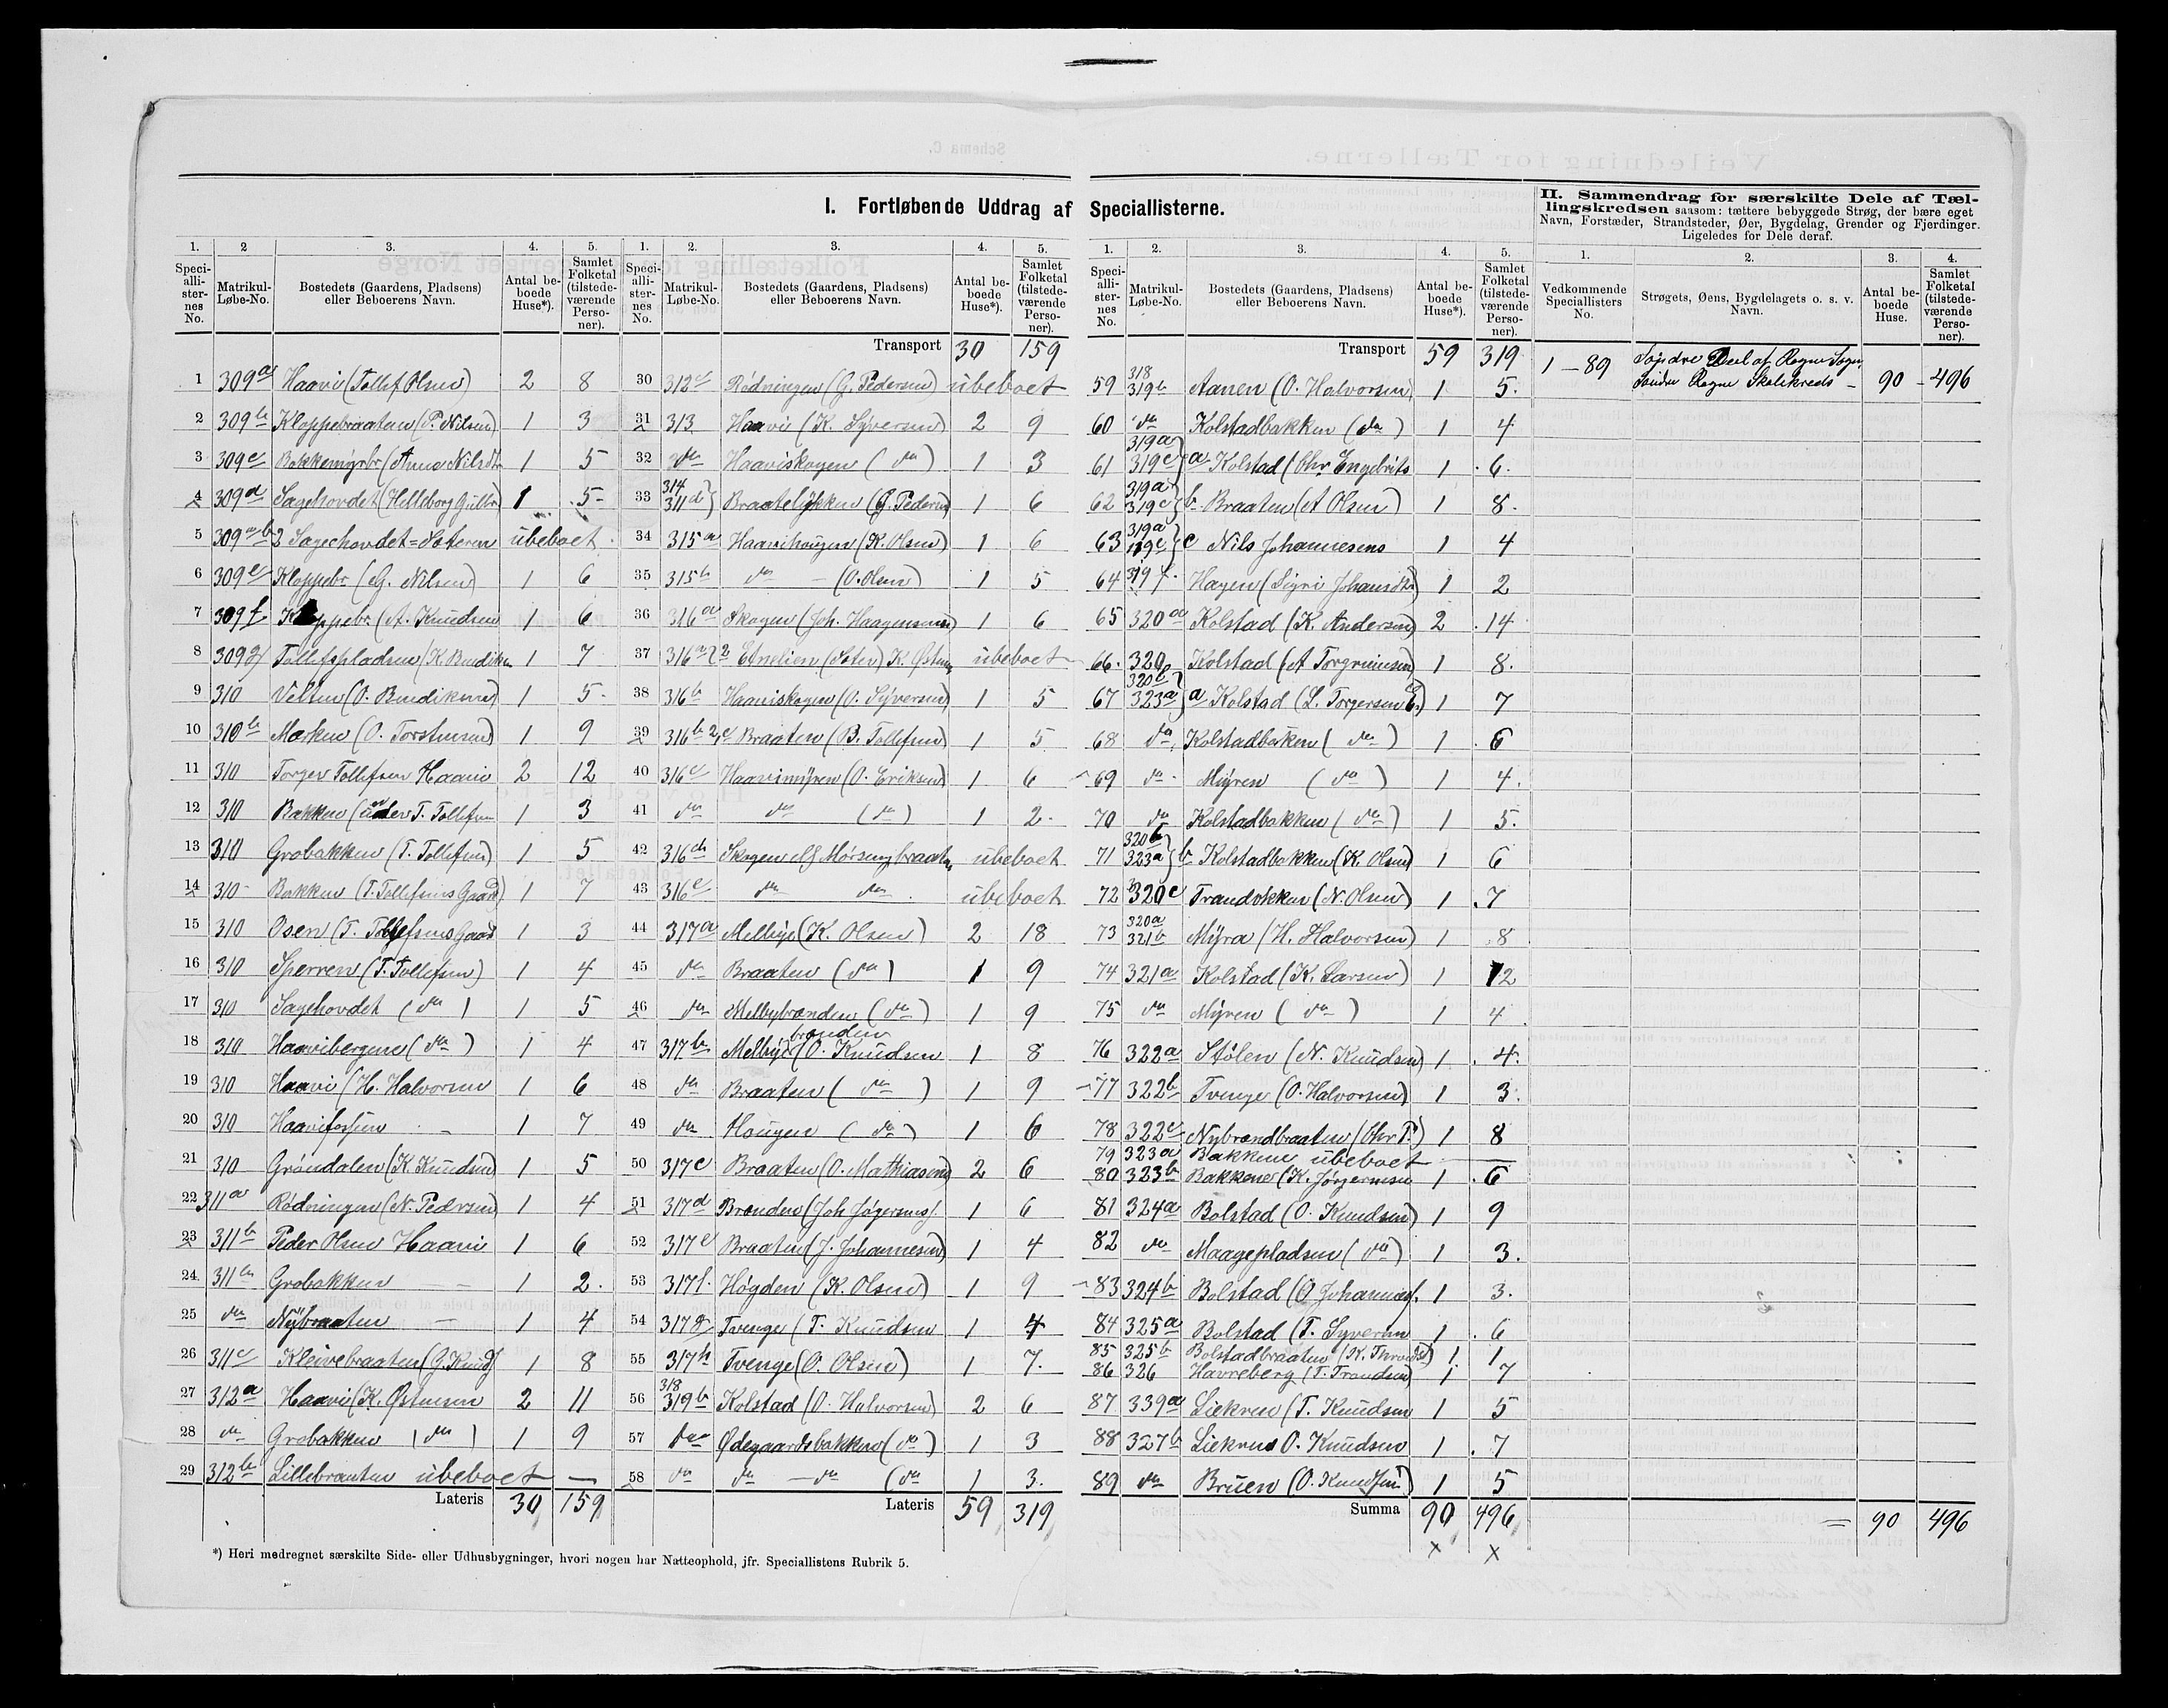 I. Fortløbende Uddrag af Speciallisterne.
II. Sammendrag for særskilte Dele af Tæl-
lingskredsen saasom: tættere bebyggede Strøg, der bære eget
Navn, Forstæder, Strandsteder, Øer, Bygdelag, Grender og Fjerdinger.
Ligeledes for Dele deraf.
1. 2 3. 4. 5.
Speciallisternes No. Matrikul-Løbe-No. Bostedets (Gaardens, Pladsens) eller Beboerens Navn. Antal beboede Huse*). Samlet Folketal (tilstedeværende Personer).
1 309a Haavi (Tollef Olsen) 2 8
2 309b Kloppebraaten (P. Nilsen) 1 3
3 309c Bakkemyrbr (Anna Nilsdtr 1 5
4 309d Sagehovdet (Helleborg Gulbr) 1 5
5 309 Sagehovdet=Sæteren übeboet
6 309e Kloppebr (G. Nilsen) 1 6
7 309f Kloppebr (A. Knudsen 1 6
8 309g Tollefspladsen (K. Bendiksn 1 7
9 310 Velten (O. Bendiksen) 1 5
10 310b Mørken (O. Torstensen) 1 9
11 310 Torger Tollefsen Haavi 2 12
12 310 Bakken (under T. Tollefsen 1 3
13 310 Grobakken (T. Tollefsen) 1 5
14 310 Bakken (T. Tollefsens Gaard) 1 7
15 310 Osen (T. Tollefsens Gaard 1 3
16 310 Sperren (T. Tollefsen) 1 4
17 310 Sagehovdet (do) 1 5
18 310 Haavibergene (do) 1 4
19 310 Haavi (H. Halvorsen 1 6
20 310 Haavifossen - 1 7
21 310 Grøndalen (K. Knudsen) 1 5
22 311a Rødningen (N. Pedersen) 1 4
23 311b Peder Olsen Haavi 1 6
24. 311b Grobakken - - 1 2.
25 do Nybraaten - 1 4
26 311c Kleivebraaten (G. Knuds 1 8
27 312a Haavi (K. Østensen 2 11
28 do Grobakken (do) 1 9
29 312b Lillebraaten übeboet —
Lateris 30 159
1. 2. 3. 4. 5.
Speciallisternes No. Matrikul-Løbe-No. Bostedets (Gaardens, Pladsens) eller Beboerens Navn. Antal beboede Huse*). Samlet Folketal (tilstedeværende Personer).
Transport 30 159
30 312c Rødningen (G. Pedersen) übeboet
31 313 Haavi (K. Syversen) 2 9
32 do Haaviskogen (do) 1 3
33 314 311d Braateløkken (G. Pedersen) 1 6
34 315a Haavihougen (K. Olsen) 1 6
35 315b do - (O. Olsen) 1 5
36 316a Skogen (Joh. Haagensen) 1 6
37 316a Etnelien (Sæter) K. Østens übeboet
38 316b Haaviskogen (O. Syversen) 1 5
39 316b Braaten (B. Tollefsen) 1 5
40 316c Haavimyren (O. Eriksen) 1 6
41 do do (do) 1 2.
42 316d Skogen übeboet
43 316e do do übeboet
44 317a Melbye (K. Olsen) 2 18
45 do Braaten (do) 1 9
46 do Melbybrænden (do) 1 9
47 317b Melbyebrænden (O. Knudsen 1 8
48 do Braaten (do) 1 9
49 do Hougen (do) 1 6
50 317c Braaten (O. Mathiasen) 2 6
51 317d Brænden (Joh Jøgersens) 1 6
52 317e Braaten (J. Johannesen) 1 4
53 317f Høgden (K. Olsen) 1 9
54 317g Tvenge (T. Knudsen 1 4
55 317h Tvenge (O. Olsen) 1 7.
56 318 319b Kolstad (O. Halvorsen) 2 6
57 do Ødegaardsbakken (do) 1 3
58 do do - do (do 1 3.
Lateris 59 319
1. 2. 3. 4. 5.
Speciallisternes No. Matrikul-Løbe-No. Bostedets (Gaardens, Plads­ens) eller Beboerens Navn. Antal beboede Huse*). Samlet Folketal (tilstedeværende Personer).
Transport 59 319
59 318 319b Aanen (O. Halvorsen) 1 5.
60 do Kolstadbakken (do) 1 4
61 319a 319c a Kolstad (Chr. Engebrits 1 6.
62 319a 319c b Braaten (A Olsen) 1 8.
63 319a 319c c Nils Johannesens 1 4
64 319f. Hagen (Sigri Johansdtr) 1 2
65 320a Kolstad (K. Andersen) 2 14
66. 320 Kolstad (A Torgrimsen) 1 8.
67 320b 323a a Kolstad (L. Torgersen E.) 1 7
68 do Kolstadbaken (do) 1 6
69 do Myren (do) 1 4.
70 do Kolstadbakken (do) 1 5.
71 320b 323a b Kolstadbakken (K. Olsen) 1 6
72 320c Trandokken (N. Olsen) 1 7
73 320a 321b Myra (H. Halvorsen) 1 8
74 321a Kolstad (K. Larsen) 1 12
75 do Myren (do) 1 4
76 322a Stølen (N. Knudsen) 1 4.
77 322b Tvenge (O. Halvorsen) 1 3.
78 322c Nybrændbraaten (Chr P.) 1 8
79 323a Bakkene übeboet
80 323b Bakkene (K. Jørgensen 1 6
81 324a Bolstad (O. Knudsen) 1 9
82 do Maagepladsen (do) 1 3.
83 324b Bolstad (O Johannes. 1 3.
84 325a Bolstad (T. Syversen 1 6
85 325b Bolstadbraaten (K. Throndsen) 1 1
86 326 Havreberg (T. Trondsen) 1 7
87 339a Liekren (T. Knudsen 1 5
88 327b Liekren O. Knudsen 1 7
89 do Bruen (O. Knudsen) 1 5
Summa 90 496
1. 2. 3. 4.
Vedkommende Speciallisters No. Strøgets, Øens, Bygdelagets o. s. v. Navn. Antal beboede Huse. Samlet Folketal (tilstedeværende Personer).
1—89 Søndre Deel af Rogne Sogn,
Søndre Rogne Skolekreds - 90 - 496
= 90 496
*) Heri medregnet særskilte Side- eller Udhusbygninger, hvori nogen har Natteophold, jfr. Speciallistens Rubrik 5.